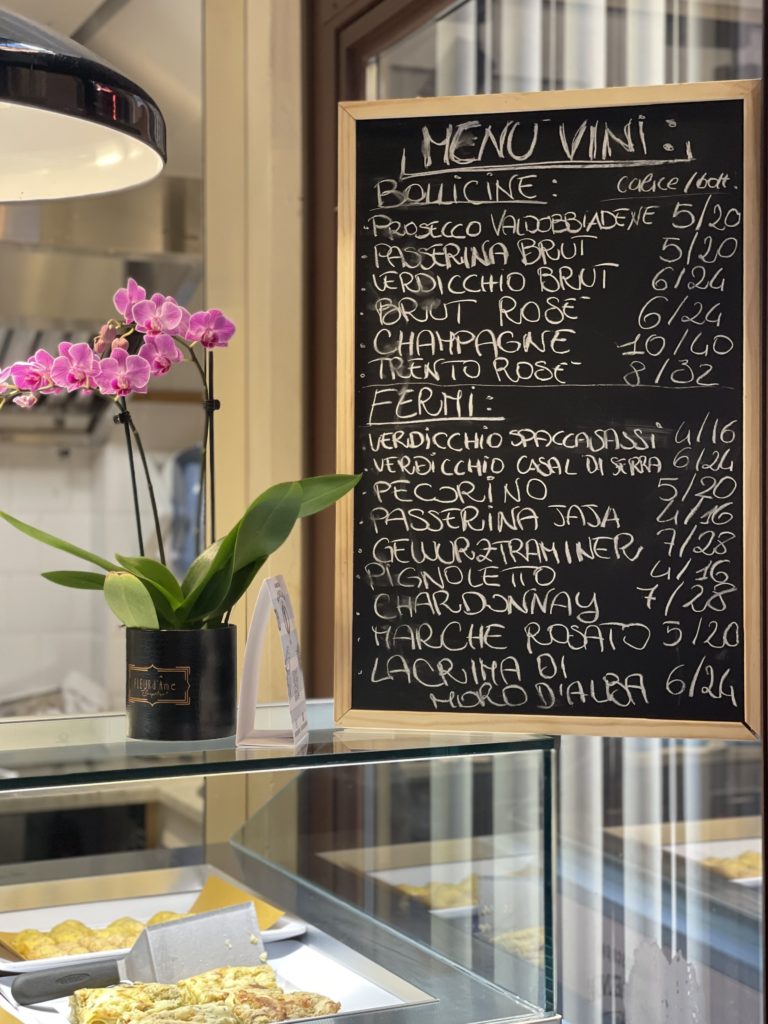 MENU VINI:
BOLLICINE: calice/bott.
PROSECCO VALDOBBIADENE 5/20
PASSERINA BRUT 5/20
VERDICCHIO BRUT 6/24
BRUT ROSE 6/24
CHAMPAGNE 10/40
TRENTO ROSE 8/32
FERMI:
VERDICCHIO SPACCASASSI 4/16
VERDICCHIO CASAL DI SERRA 6/24
PECORINO 5/20
PASSERINA JAJA 4/16
GEWURZTRAMINER 7/28
PIGNOLETTO 4/16
CHARDONNAY 7/28
MARCHE ROSATO 5/20
LACRIMA DI
MORO D'ALBA 6/24
FLEUR d'Âme